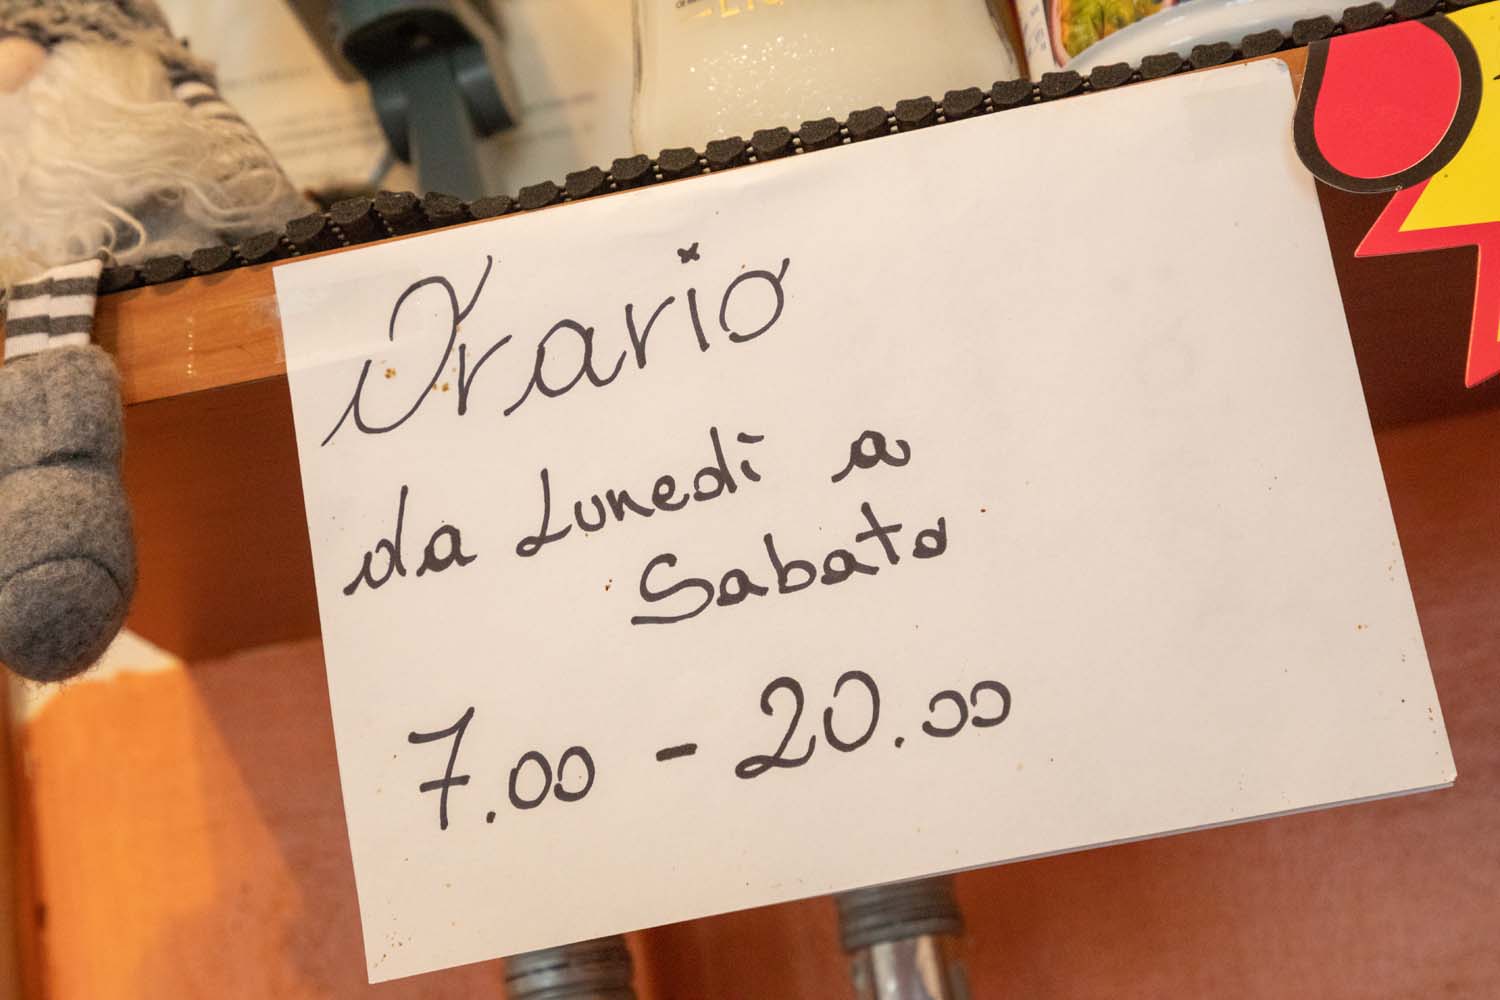 Orario
da Lunedì a
Sabato
7.00 - 20.00